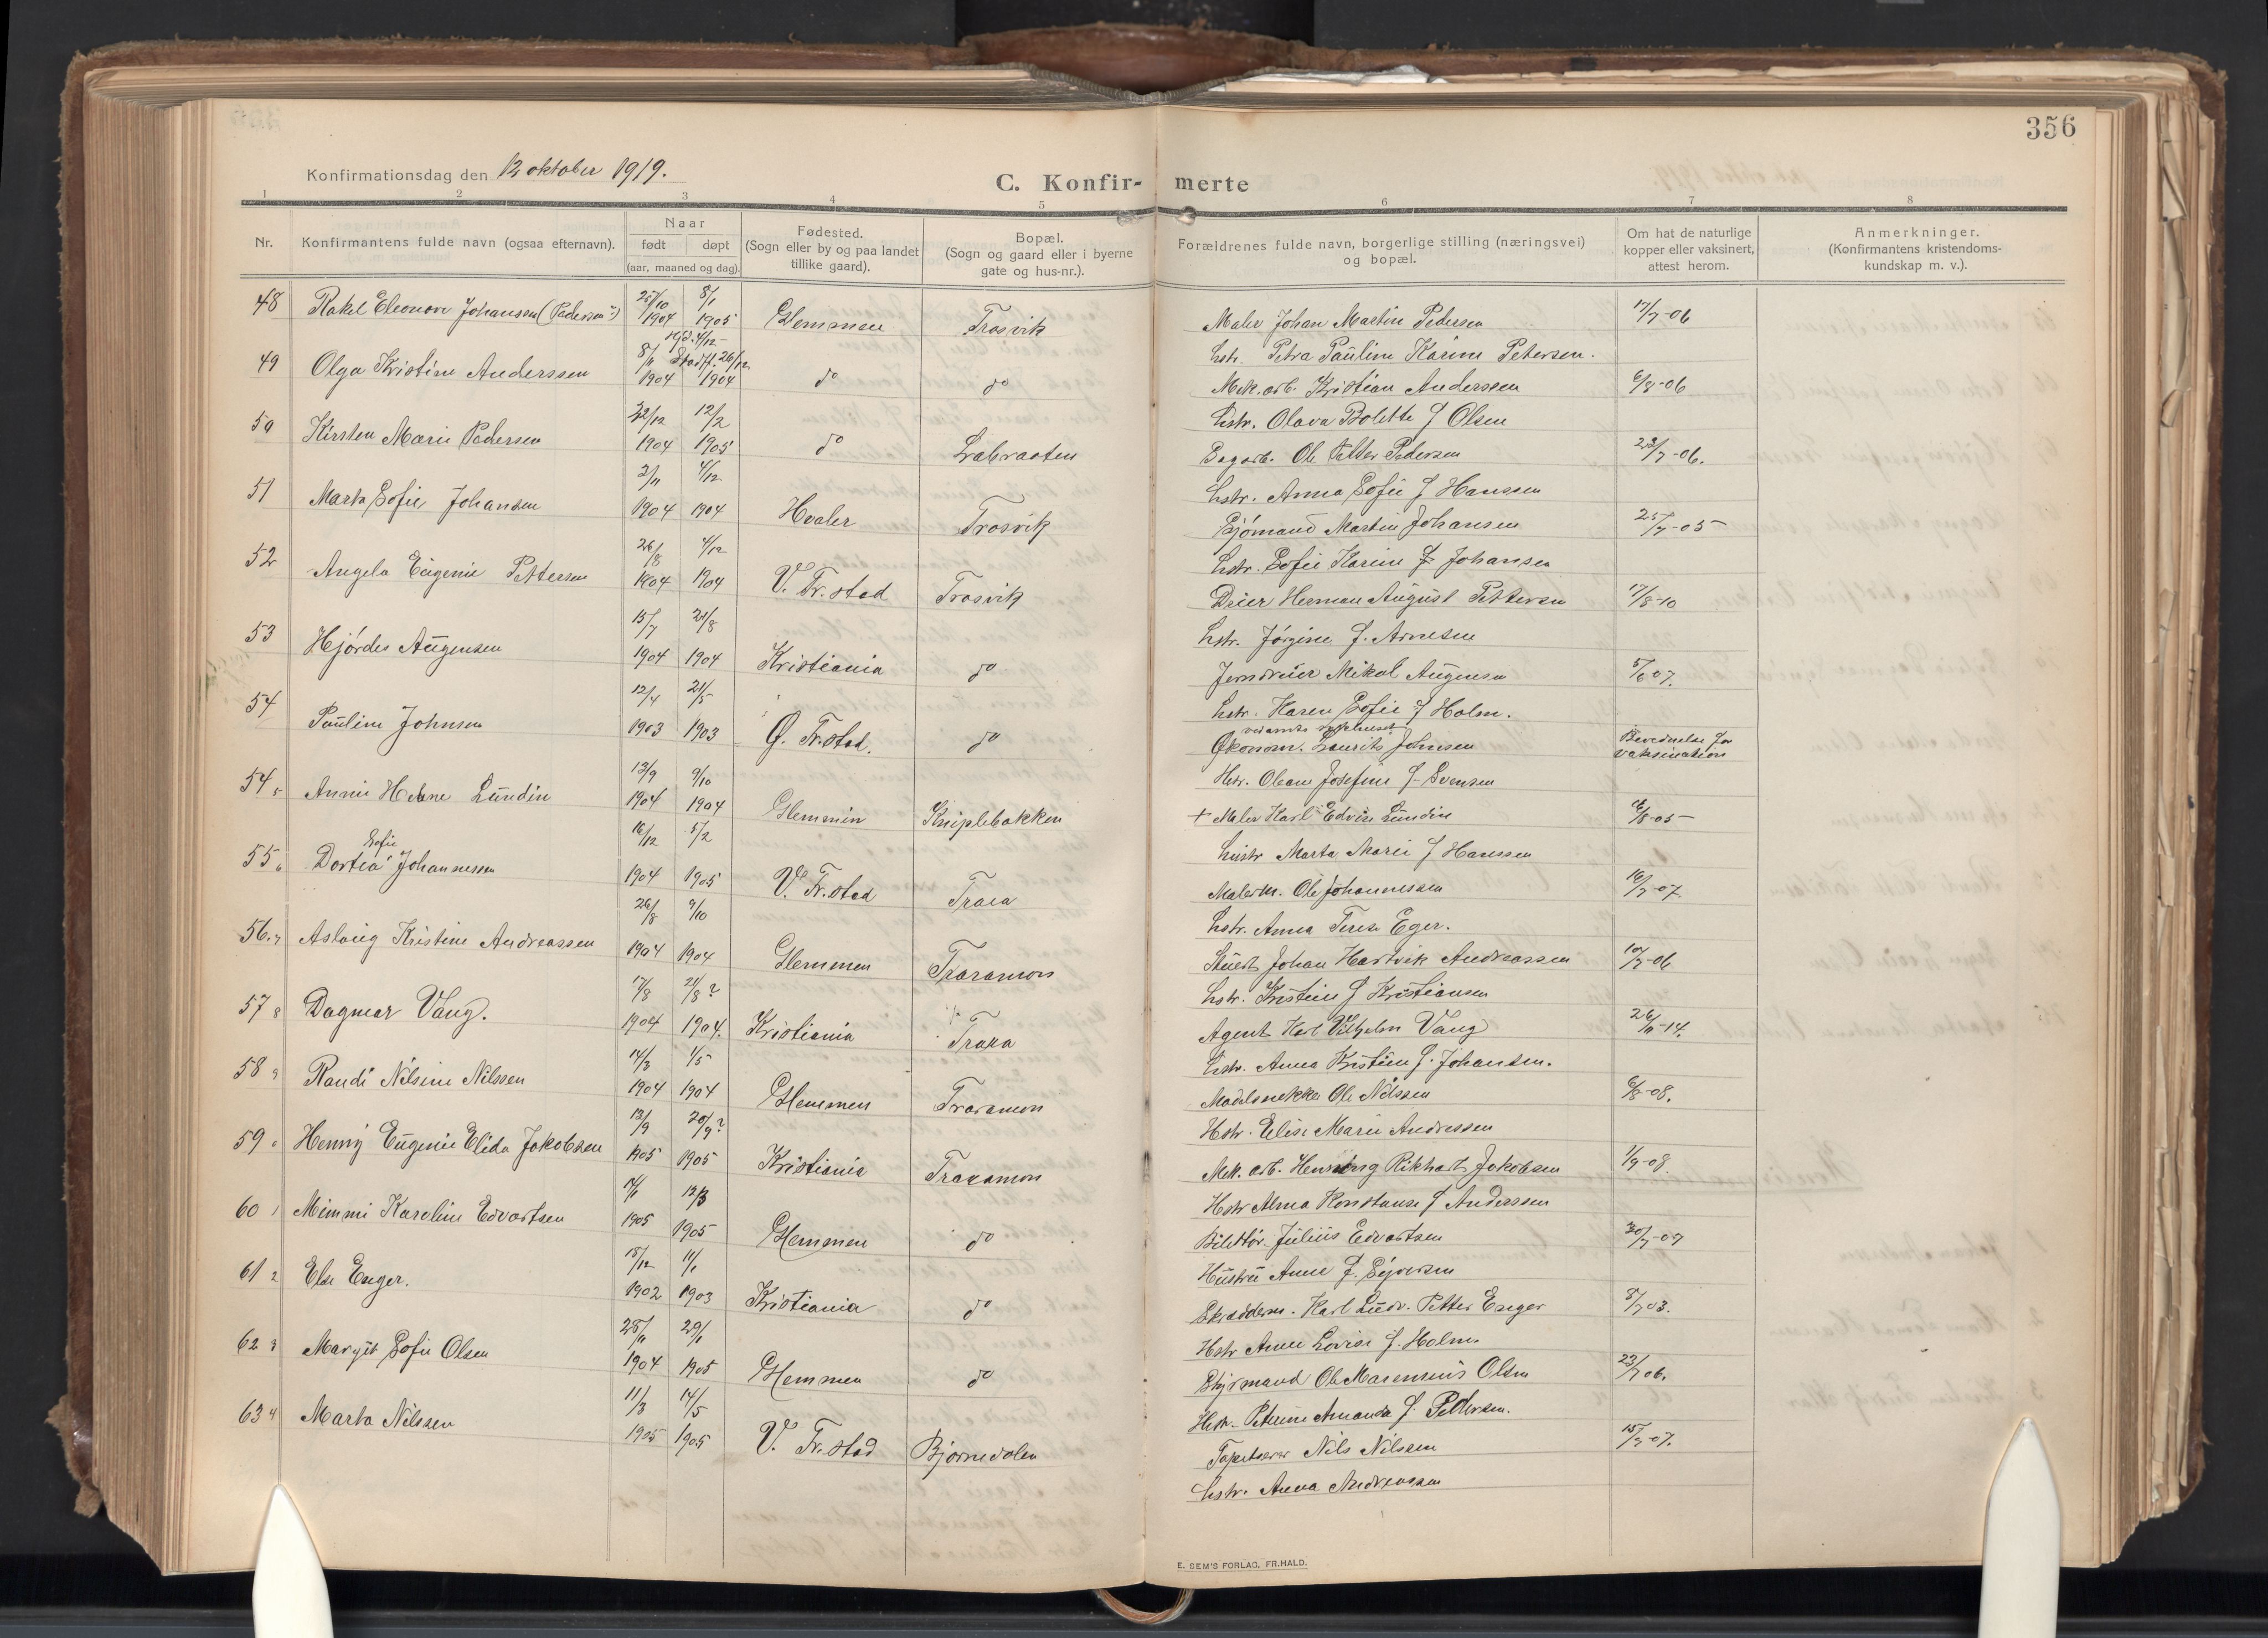 356
Konfirmationsdag den 12 oktober 1919.
C. Konfir- merte
1 2 3 4 5 6 7 8
Nr.
Konfirmantens fulde navn (ogsaa efternavn).
Naar
født døpt
(aar, maaned og dag).
Fødested.
(Sogn eller by og paa landet
tillike gaard).
Bopæl.
(Sogn og gaard eller i byerne
gate og hus-nr.).
Forældrenes fulde navn, borgerlige stilling (næringsvei)
og bopæl.
Om hat de naturlige
kopper eller vaksinert,
attest herom.
Anmerkninger.
(Konfirmantens kristendoms-
kundskap m. v.).
48 Rakel Eleonore Johansen (Pedersen) 25/10 1904 8/1 1905 Glemmen Trosvik Maler Johan Martin Pedersen 17/7-06
hstr. Petra Pauline Karine Petersen.
49 Olga Kristine Anderssen 8/11 1904 Stadf. 26/12 1904 do do Mek. arb. Kristian Anderssen 6/8-06
hstr. Olava Bolette f Olsen
50 Kirsten Marie Pedersen 22/12 1904 12/2 1905 do Labraaten Sagarb. Ole Petter Pedersen 23/7-06.
hstr. Anna Sofie f Hanssen
51 Marta Sofie Johansen 2/11 1904 4/12 1904 Hvaler Trosvik Sjømand Martin Johansen 25/7-05
hstr. Sofie Karine f Johansen
52 Angela Eugenie Pettersen 26/8 1904 4/12 1904 V. Fr.stad Trosvik Dreier Herman August Pettersen 17/8-10
hstr. Jørgine f. Arnesen
53 Hjørdis Augensen 15/7 1904 21/8 1904 Kristiania do Jerndreier Mikal Augensen 5/6 07.
hstr. Karen Sofie f Holm.
54 Pauline Johnsen 12/4 1903 21/5 1903 Ø. Fr.stad. do Økonom. Laurits Johnsen
Hstr. Oleane Josefine f. Svensen
vaksination
54 5 Annie Helene Lundin 13/9 1904 9/10 1904 Glemmen Kniplebakken + Maler Karl Edvin Lundin 6/8-05
hustr Marta Marie f Hanssen
55 6 Dortea Sofie Johannessen 16/12 1904 5/2 1905 V. Fr.stad Trara Malerm. Ole Johannessen 16/7-07.
hstr. Anna Terese Eger.
56. 7 Aslaug Kristine Andreassen 26/8 1904 9/10 1904 Glemmen Traramoen Stuert Johan Hartvik Andreassen 10/7-06
hstr. Kristine f Kristiansen
57 8 Dagmar Vang. 17/8 1904 21/8? 1904. Kristiania Trara Agent Karl Vilhelm Vang 26/11-14.
hstr. Anna Kristine f. Johansen.
58 9 Randi Nilsine Nilssen 14/3 1904 1/5 1904 Glemmen Traramoen Modelsnekker Ole Nilssen 6/8-08.
Hstr. Elise Marie Andressen
59 0 Henny Eugenie Elida Jakobsen 13/9 1905 20/9? 1905 Kristiania Traramoen Mek. arb. Henning Rikhart Jakobsen 1/9-08.
Hstr Alma Konstanse f Anderssen
60 1 Mimmi Karoline Edvartsen 1905 12/3 1905 Glemmen do Billettør. Julius Edvartsen 30/7-09
Hustru Anne f. Syversen
61 2 Else Enger. 18/12 1902 11/1 1903 Kristiania do Skrædderm. Karl Ludv. Petter Enger 8/7 03.
Hstr Anne Lovise f. Holm.
62 3 Margit Sofie Olsen 25/11 1904 29/1 1905 Glemmen do Styrmand Ole Marensius Olsen 23/7 06.
Hstr. Peterine Amanda f. Pettersen.
63 4 Marta Nilssen 11/3 1905 14/5 1905 V. Fr.stad Bjørnedalen Tapetserer Nils Nilssen 15/7-07.
hstr. Anna Andreassen
E. SEM'S FORLAG, FR.HALD.